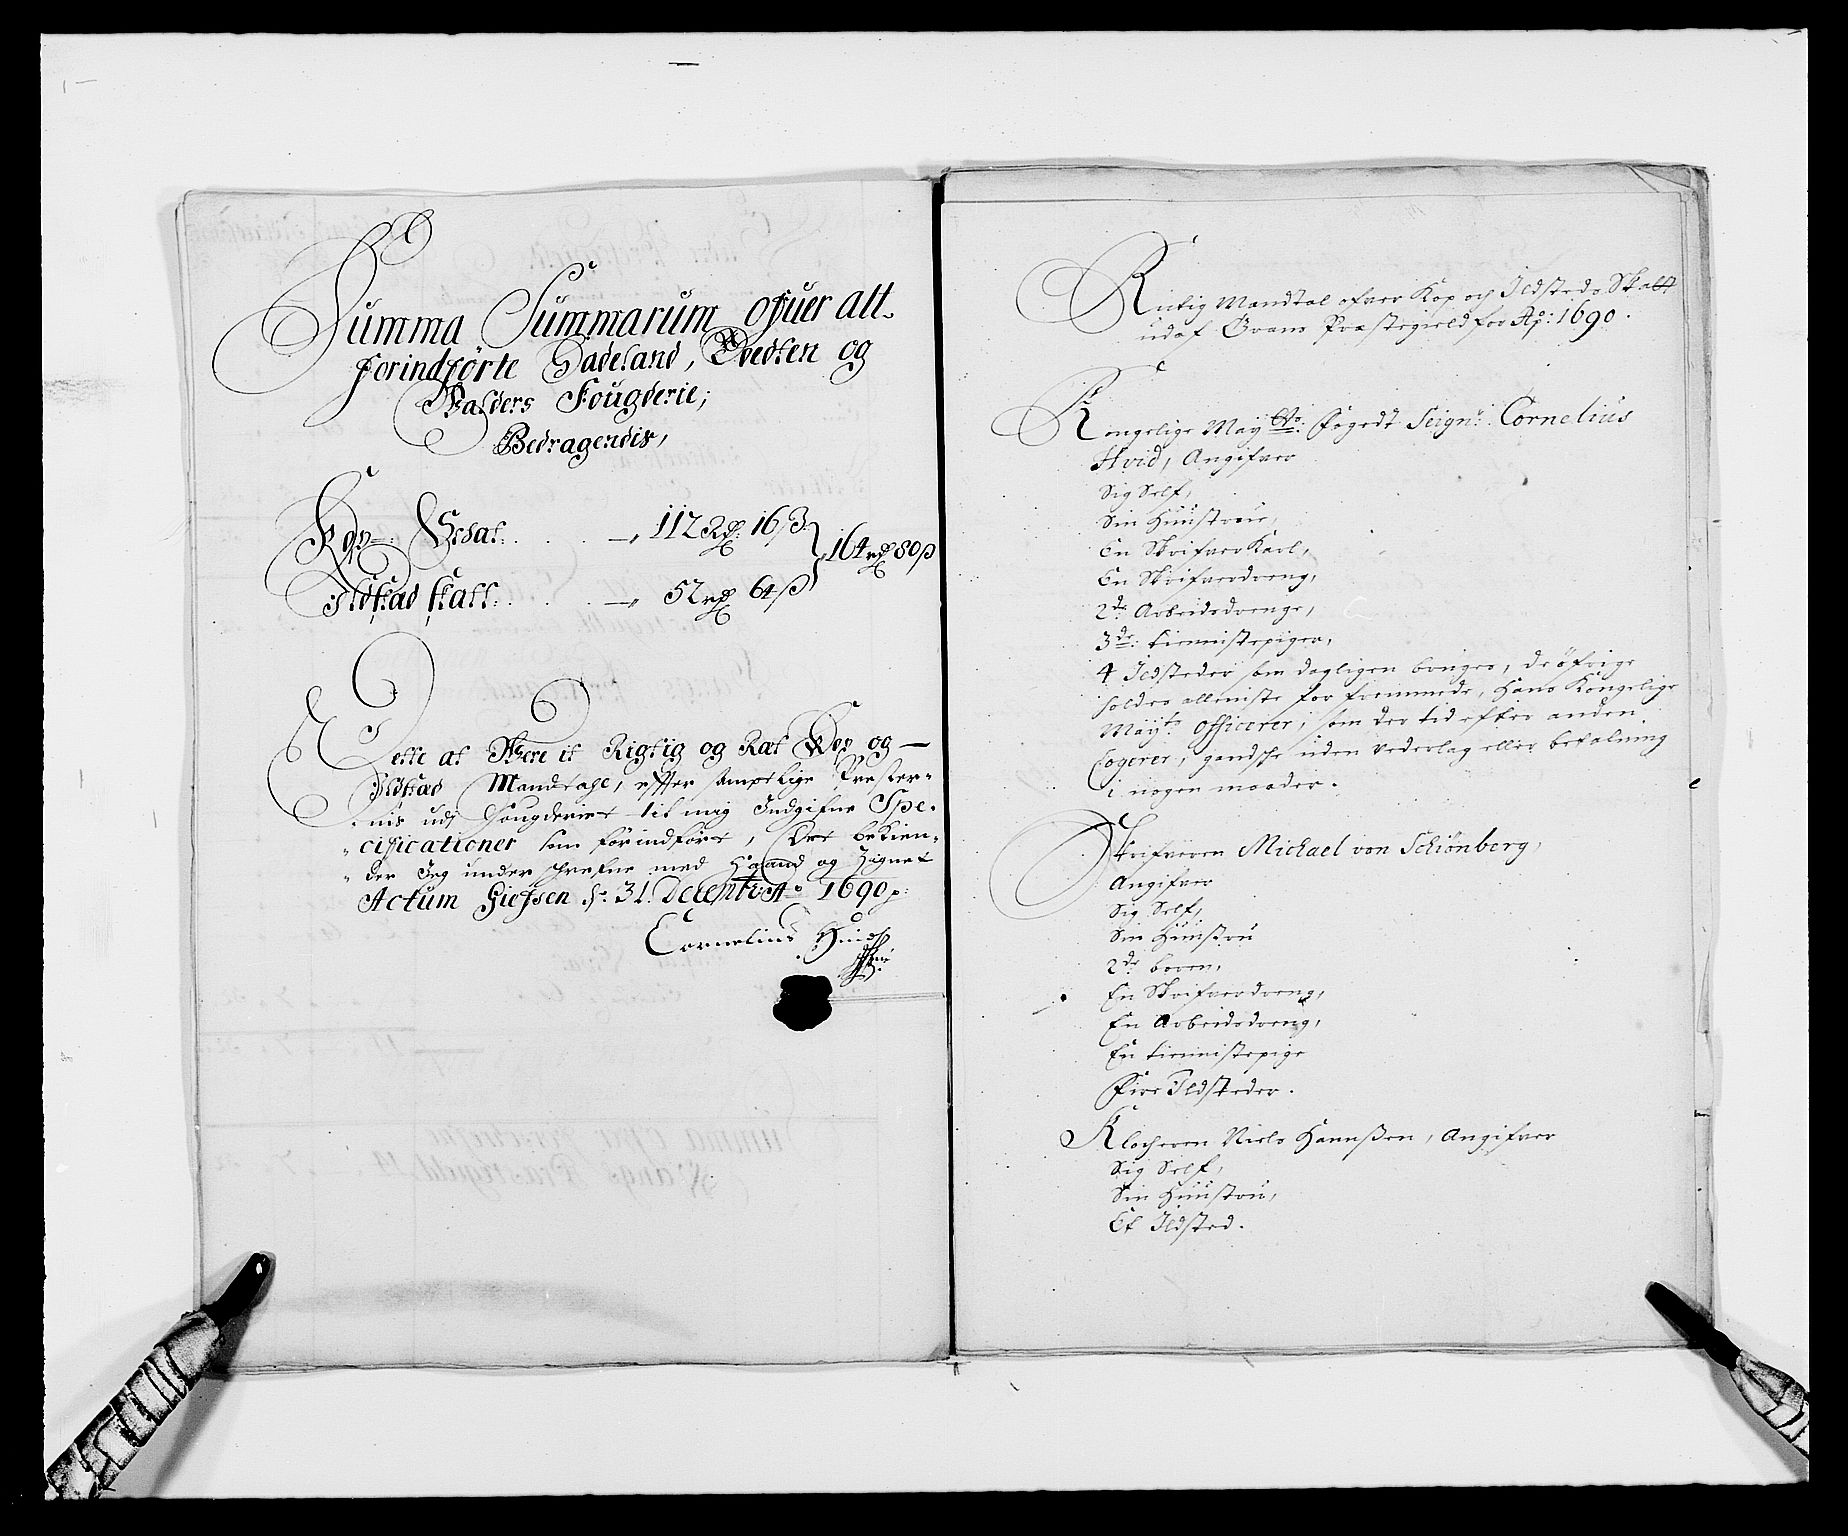 Summa Summarum ofuer alt
forindförte Hadeland, Toedten og
Valders Fougderie;
Bedragendis,
Kop Schat. . . . . . 112 Rdr: 16 ß: } 164 rdr 80 ß
Ildstæd skatt. . . . . . 52 rdr 64 ß
Dette at Were it Rigtig og Ræt Kop og
Ildstæd Mandtahl, effter samptlige Præster-
nis udj Fougderiet til mig Indgifne Spe-
cificationer som forindført, Det bekien-
der Jeg underschrefne med Haand og Zignet
Actum Giefsen d: 31. Decembr: Ao 1690
Cornelius Huid
Rictig Mandtal ofver Kop och Ildsteds Skatt
udaf Grans Præstegield for Ao: 1690.
Kongelige Mayts: Fogedt Seignr: Cornelius
Hvid, Angifver
Sig Self,
Sin Hüüstrüe,
En Skrifver Karl,
En Skrifverdreng,
2de Arbeidsdrenge,
3de: tiennistepiger,
4 Ildsteder som dagligen bruges, de öfrige
holdes alleniste for fremmede, Hans Kongelige
Mayts Officerer, som der tid efter anden
Logerer, gandsche uden vederlag eller betalning
i nogen maader.
Skrifveren Michael von Schiönberg,
Angifver
Sig Self,
Sin Hüüstrü
2de börn,
En Skrifverdreng,
En Arbeidsdreng,
En tiennistepige
Fire Ildsteder.
Klocheren Niels Hannßen, Angifver
Sig Self,
Sin Hüüstrü,
Et Ildsted.